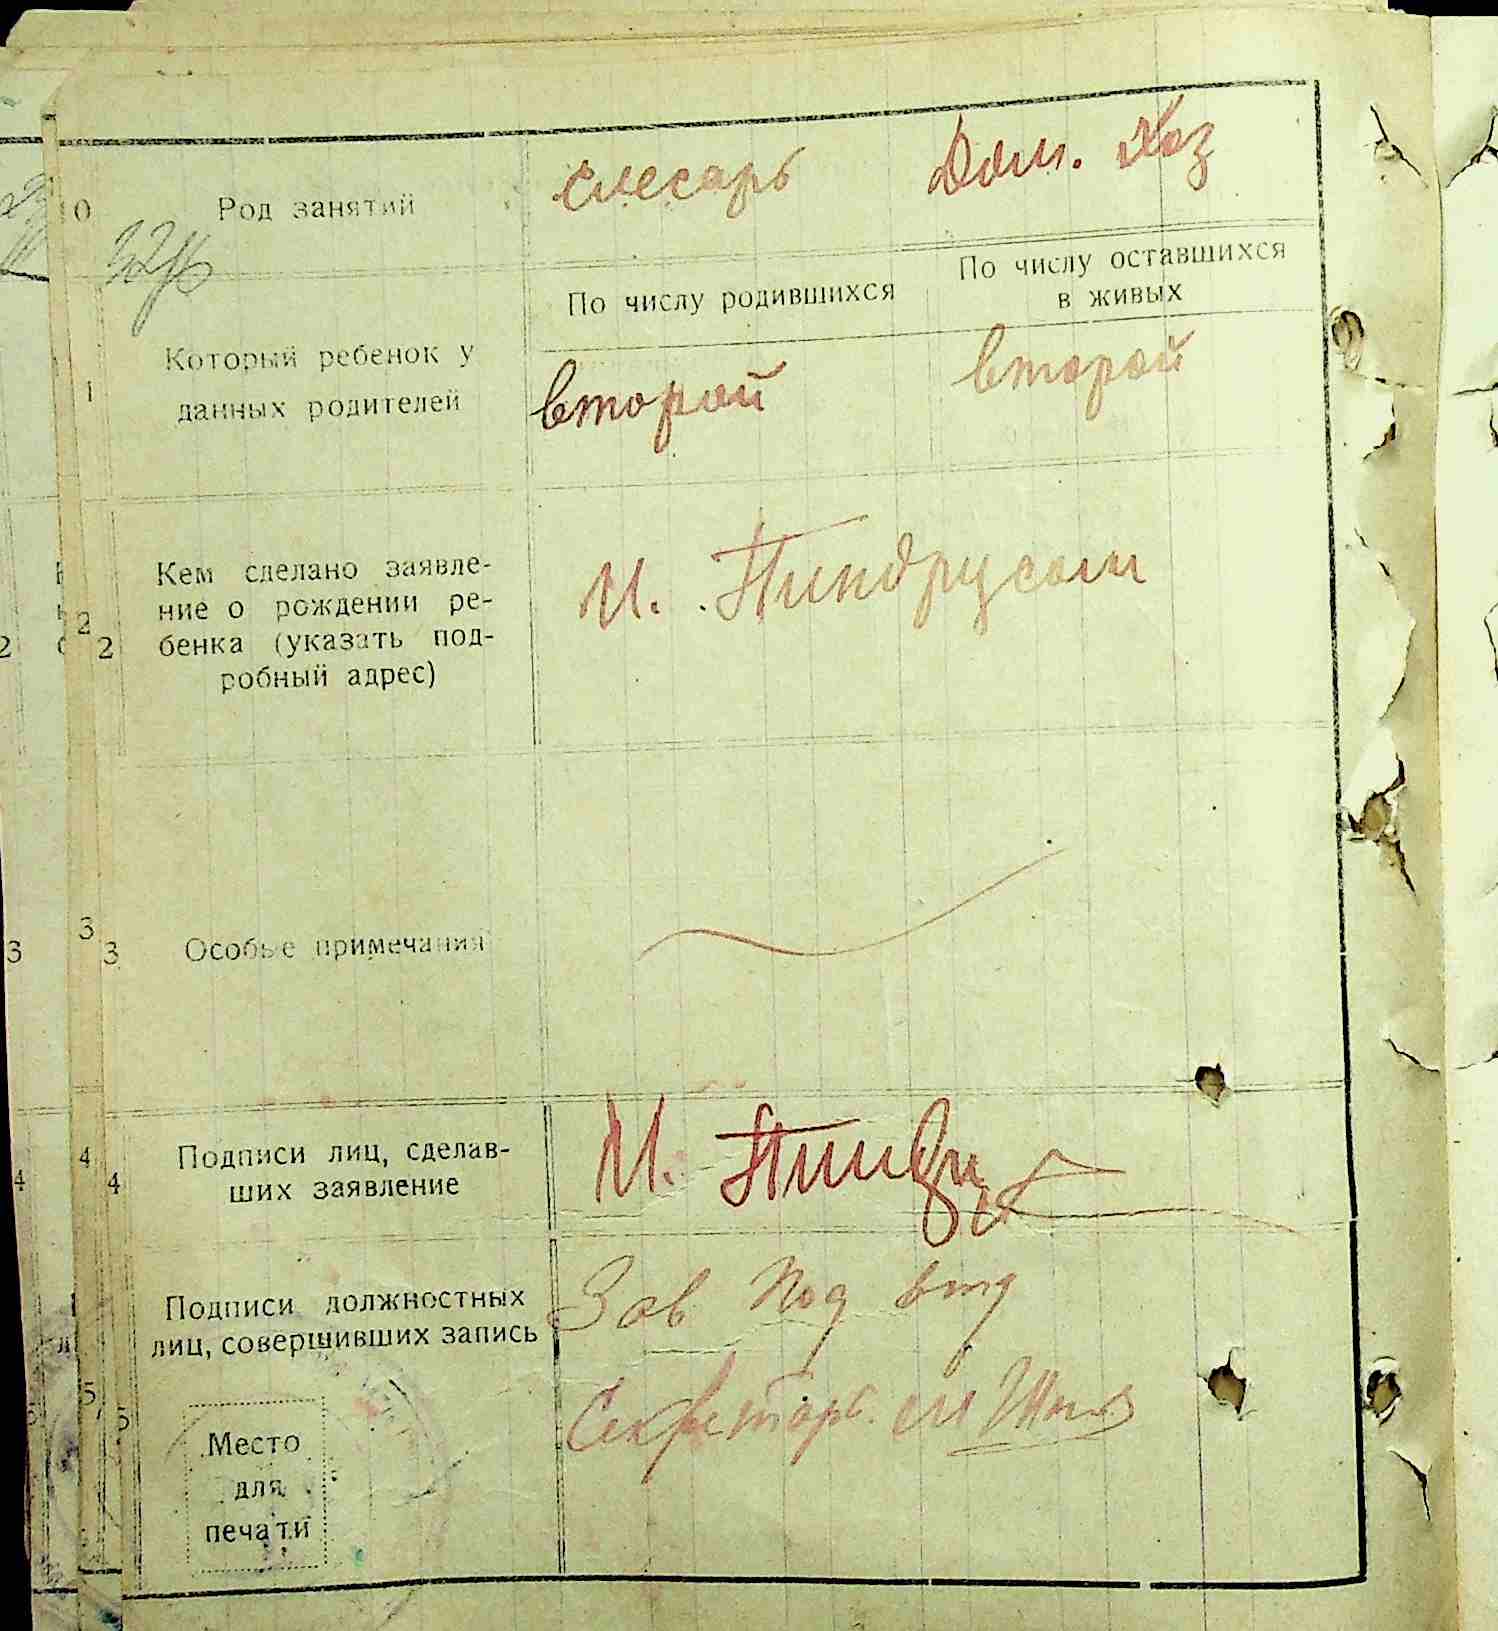 слесарь Дом. Хоз
0 Род занятий
По числу родившихся
По числу оставшихся
в живых
1 Который ребенок у
данных родителей
второй второй
2 Кем сделано заявле-
ние о рождении ре-
бенка (указать под-
робный адрес)
И. Пиндрусом
3 Особые примечания
4 Подписи лиц, сделав-
ших заявление
И.
Подписи должностных
лиц, совершивших запись
Зав Под отд
5 Секретарь
Место
для
печати